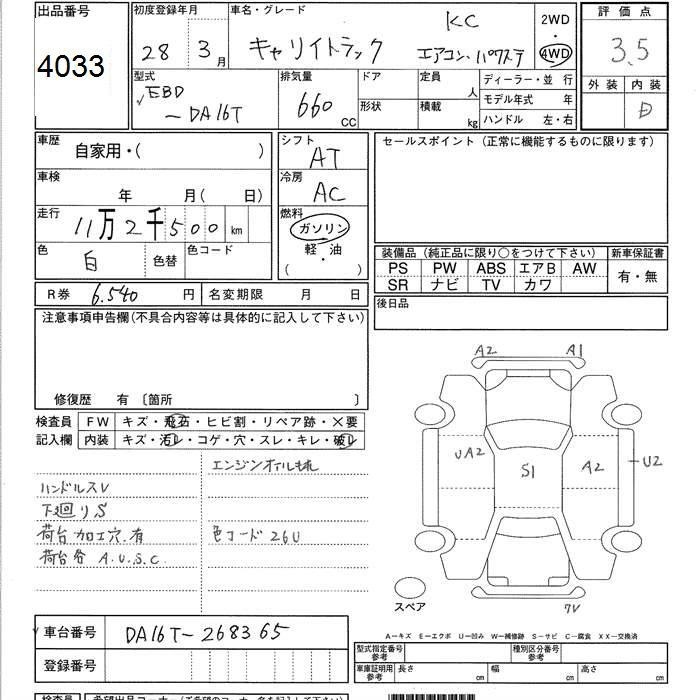 出品番号
4033
初度登録年月
28年3月
車名・グレード
KC
キャリイトラック
エアコン・パワステ
2WD
・
4WD
評価点
3.5
外装 内装
D
型式
EBD
－DA16T
排気量
660 CC
ドア
形状
定員
人
積載
kg
ディーラー・並 行
モデル年式 年
ハンドル 左・右
車歴
自家用・( )
車検
年 月( 日)
走行
11万2千500km
色
白
色替
色コード
シフト
AT
冷房
AC
燃料
ガソリン
軽・油
( )
セールスポイント (正常に機能するものに限ります)
装備品 (純正品に限り○をつけて下さい)
PS PW ABS エアB AW
SR ナビ TV カワ
新車保証書
有・無
後日品
R券 6.540円
名変期限 月 日
注意事項申告欄(不具合内容等は具体的に記入して下さい)
修復歴 有 〔箇所 〕
検査員
記入欄
FW キズ・飛石・ヒビ割・リペア跡・×要
内装 キズ・汚レ・コゲ・穴・スレ・キレ・破レ
エンジンオイルもれ
ハンドルスV
下廻りS
荷台加工穴.有
荷台各 A.U.S.C.
色コード 26U
A2 A1
UA2 S1 A2 U2
7V
スペア
A－キズ E－エクボ U－凹み W－補修跡 S－サビ C－腐食 XX－交換済
車台番号 DA16T-268365
登録番号
型式指定番号
参考
種別区分番号
参考
車庫証明用
参考
長さ cm 幅 cm 高さ cm